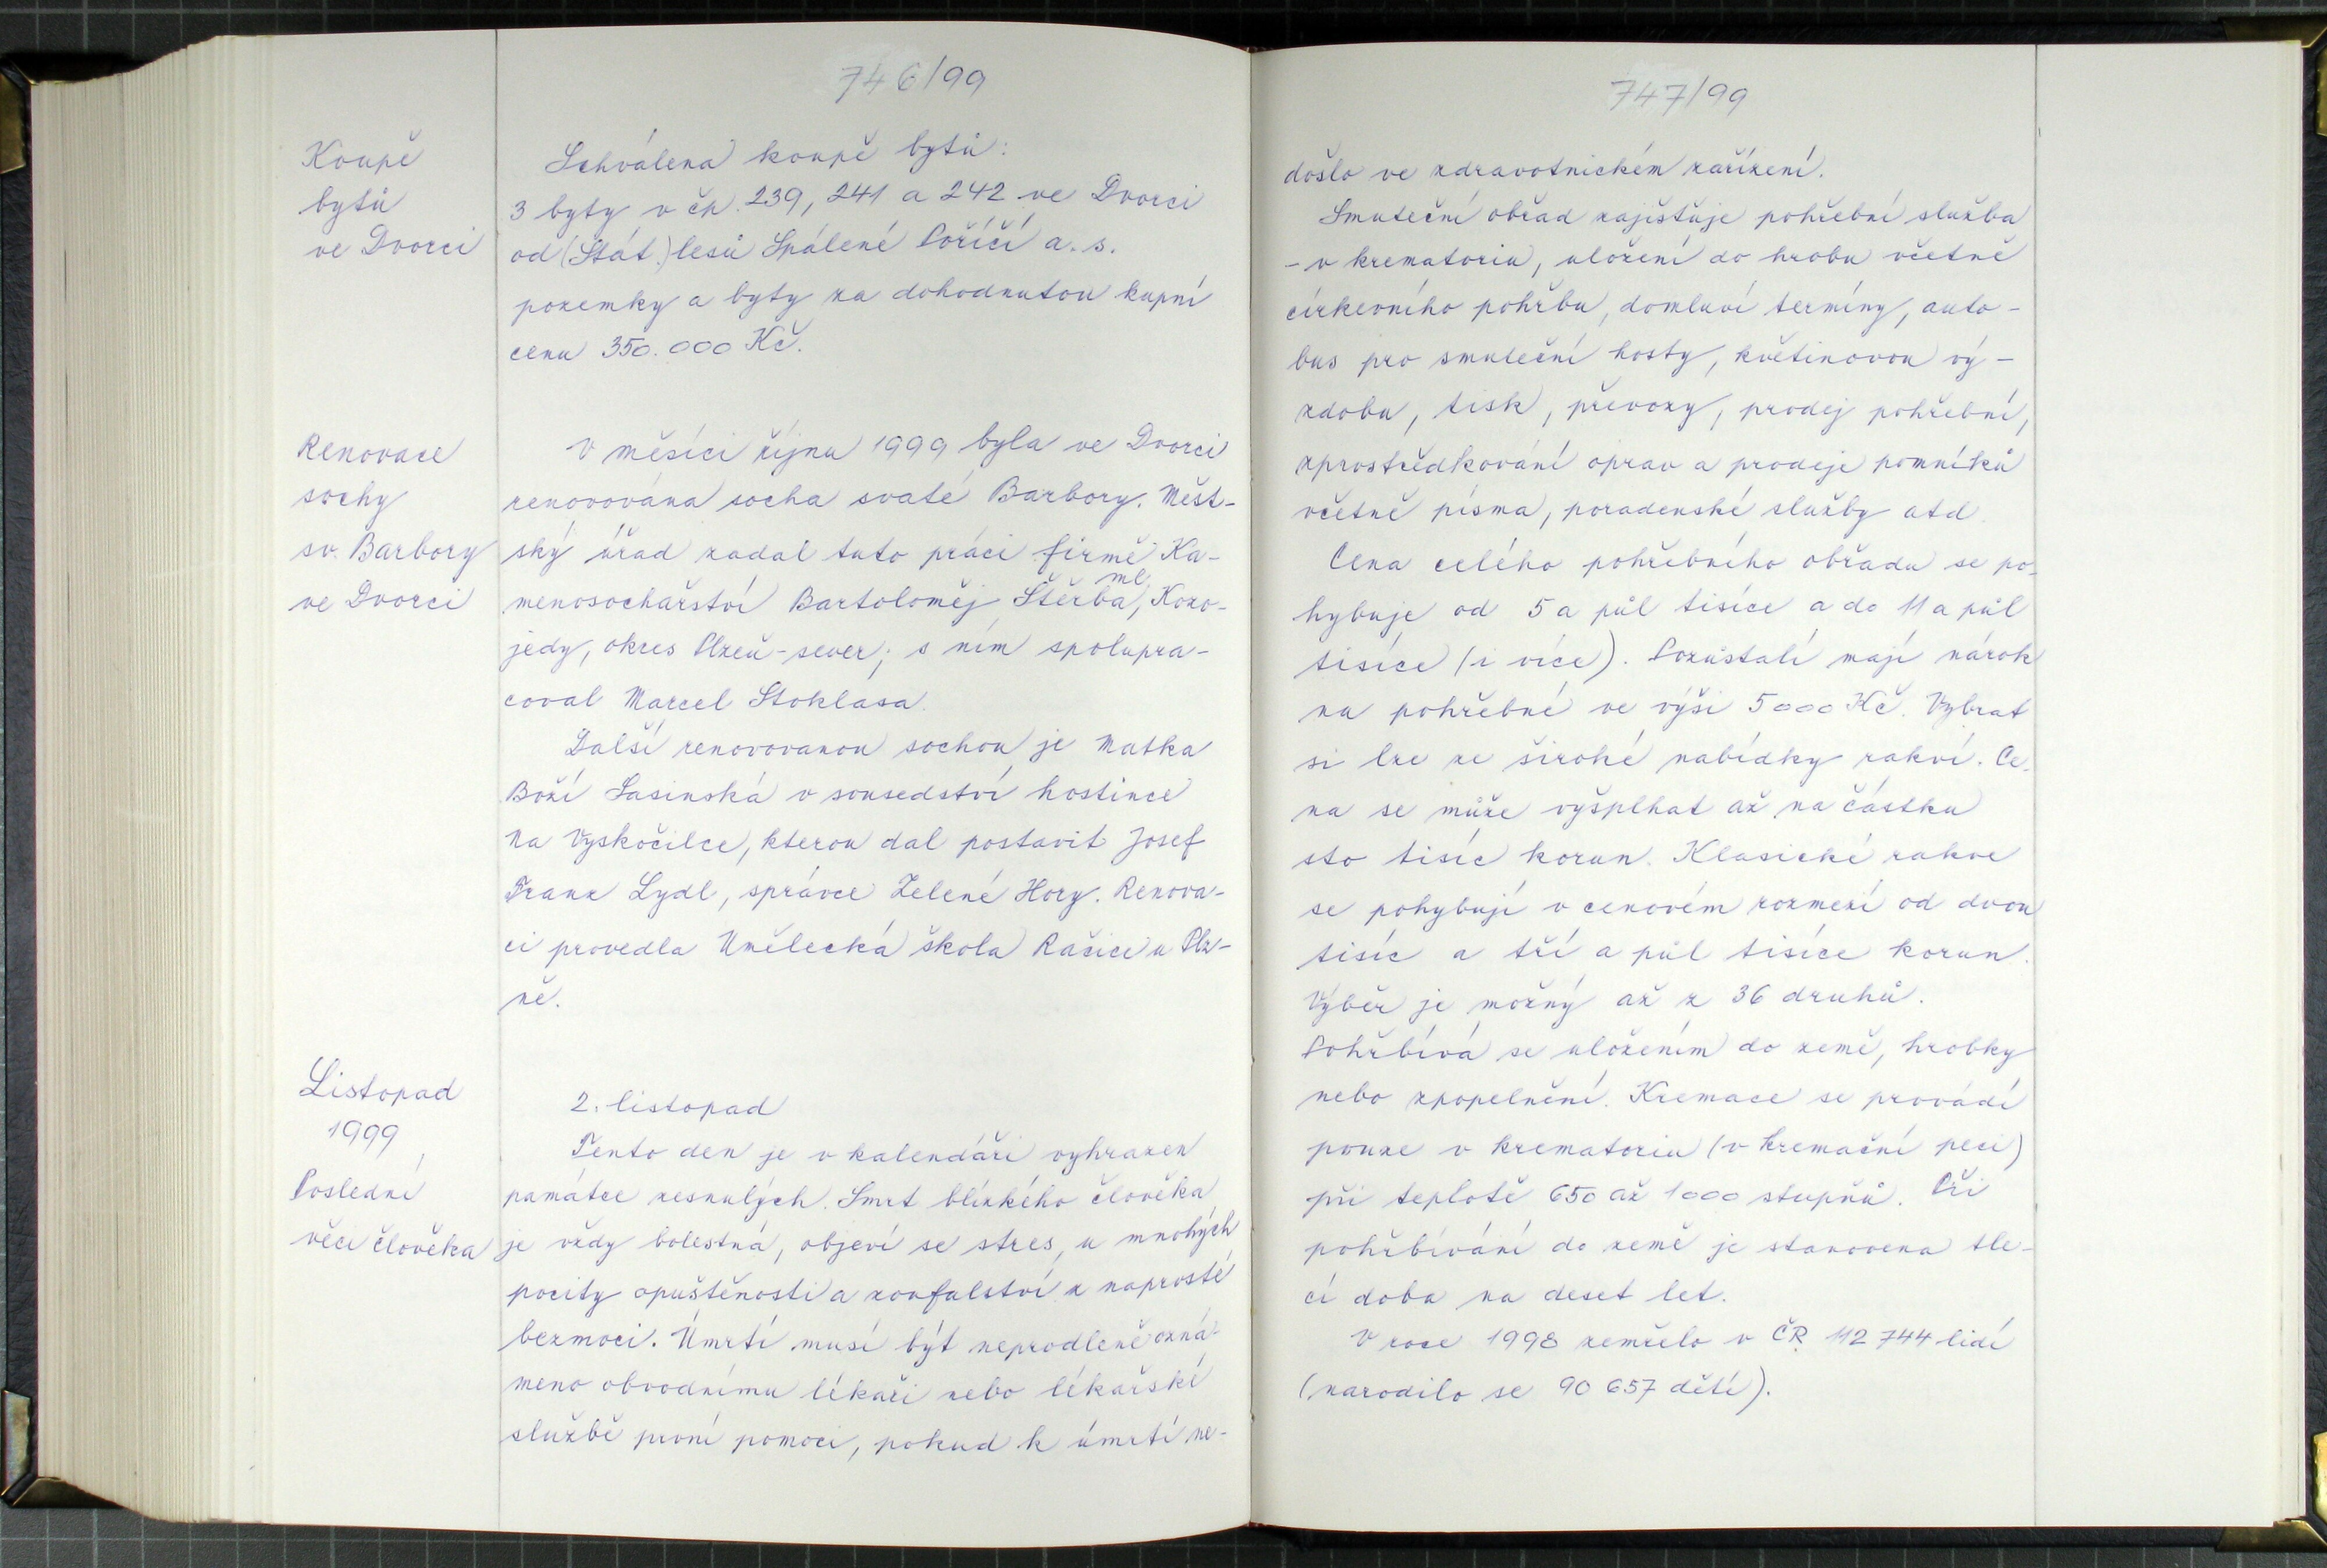 746/99
Koupě
bytů
ve Dvorci
Schválena koupě bytů:
3 byty v čp. 239, 241 a 242 ve Dvorci
od (Stát.) lesů Spálené Poříčí a. s.
pozemky a byty za dohodnutou kupní
cenu 350.000 Kč.
Renovace
sochy
sv. Barbory
ve Dvorci
V měsíci říjnu 1999 byla ve Dvorci
renovována socha svaté Barbory. Měst-
ský úřad zadal tuto práci firmě Ka-
menosochařství Bartoloměj Štěrba ml., Kozo-
jedy, okres Plzeň-sever; s ním spolupra-
coval Marcel Stoklasa.
Další renovovanou sochou je Matka
Boží Sasinská v sousedství hostince
Na Vyskočilce, kterou dal postavit Josef
Franz Lydl, správce Zelené Hory. Renova-
ci provedla Umělecká škola Račice u Plz-
ně.
Listopad
1999
Poslední
věci člověka
2. listopad
Tento den je v kalendáři vyhrazen
památce zesnulých. Smrt blízkého člověka
je vždy bolestná, objeví se stres, u mnohých
pocity opuštěnosti a zoufalství z naprosté
bezmoci. Úmrtí musí být neprodleně ozná-
meno obvodnímu lékaři nebo lékařské
službě první pomoci, pokud k úmrtí ne-
747/99
došlo ve zdravotnickém zařízení.
Smuteční obřad zajišťuje pohřební služba
- v krematoriu, uložení do hrobu včetně
církevního pohřbu, domluví termíny, auto-
bus pro smuteční hosty, květinovou vý-
zdobu, tisk, převozy, prodej pohřební,
zprostředkování oprav a prodeje pomníků
včetně písma, poradenské služby atd.
Cena celého pohřebního obřadu se po-
hybuje od 5 a půl tisíce a do 11 a půl
tisíce (i více). Pozůstalí mají nárok
na pohřebné ve výši 5000 Kč. Vybrat
si lze ze široké nabídky rakví. Ce-
na se může vyšplhat až na částku
sto tisíc korun. Klasické rakve
se pohybují v cenovém rozmezí od dvou
tisíc a tří a půl tisíce korun.
Výběr je možný až z 36 druhů.
Pohřbívá se uložením do země, hrobky
nebo zpopelnění. Kremace se provádí
pouze v krematoriu (v kremační peci)
při teplotě 650 až 1000 stupňů. Při
pohřbívání do země je stanovena tle-
cí doba na deset let.
V roce 1998 zemřelo v ČR 112 744 lidí
(narodilo se 90 657 dětí).